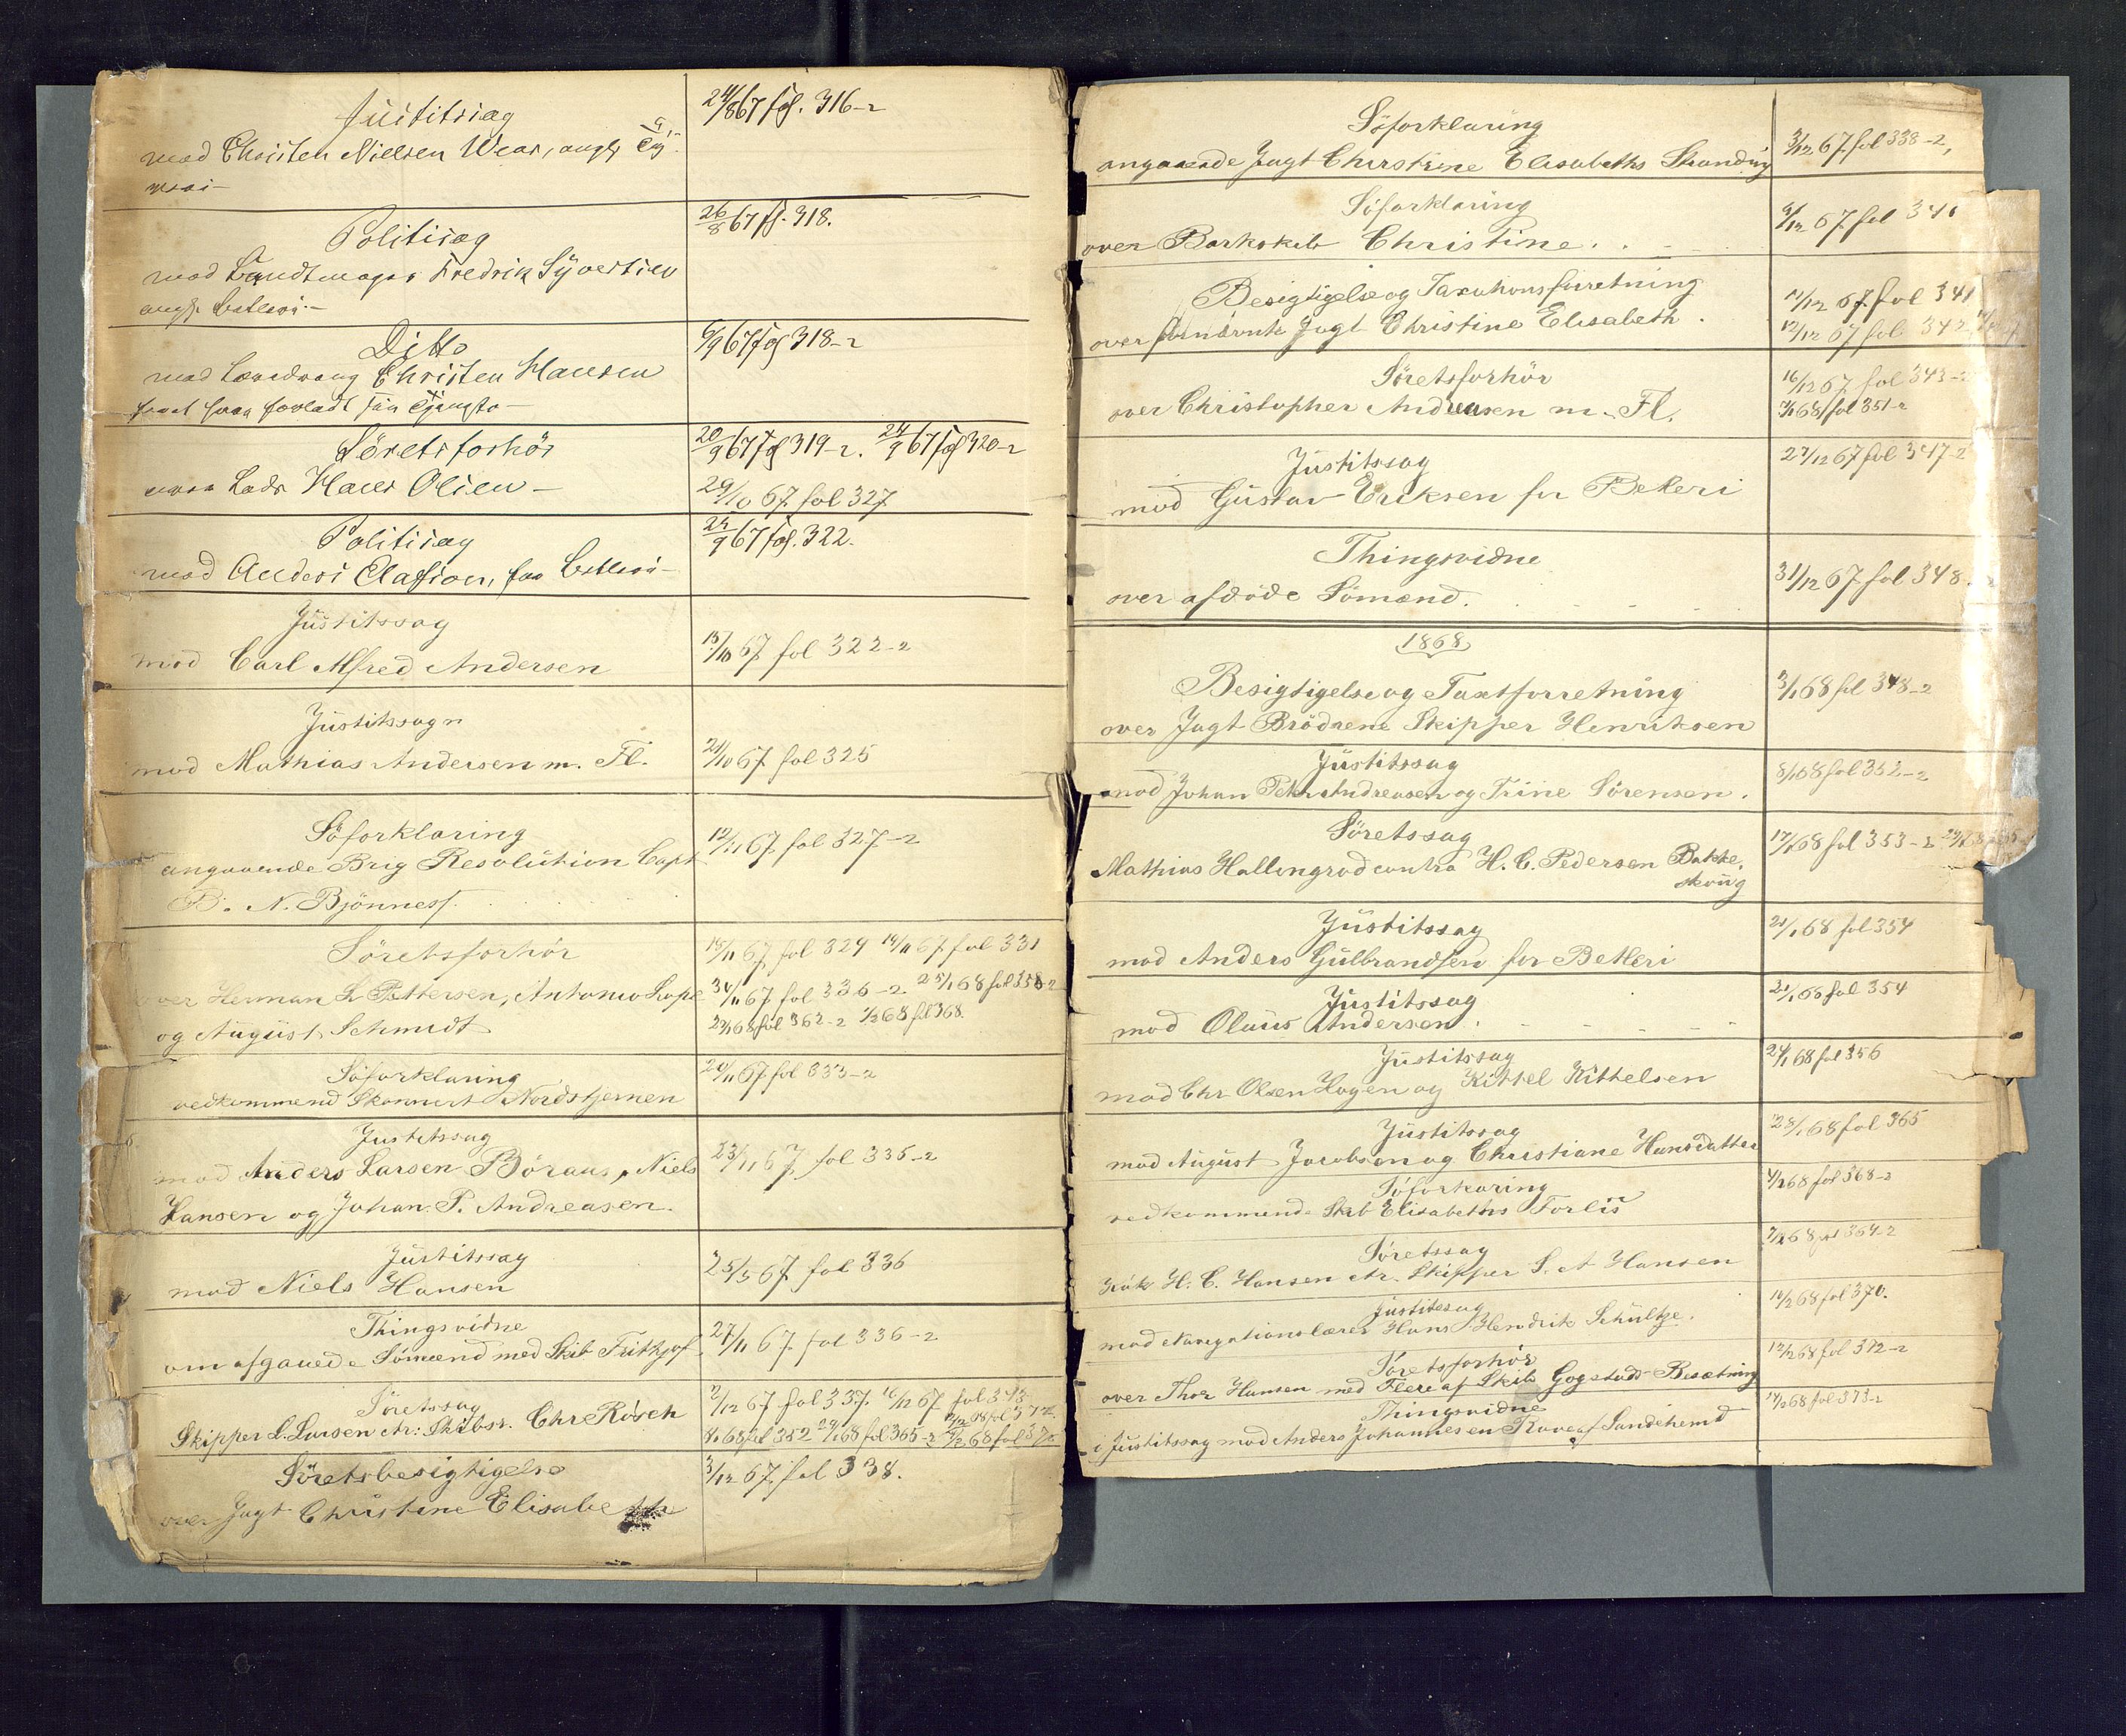 Justitssag
mod Christen Nielsen Wear, angaa Tÿ-
veri-
24/8 67 fol. 316-2
Politisag
mod Fredrik Syvertsen
angaa Betleri-
26/8 67 fol. 318.
Ditto
mod Christen Hansen
forladt sin Tjeneste-
6/9 67 fol 318-2
Söretsforhör
over Lods Hans Olsen-
20/9 67 fol 319-2. 24/9 67 fol 320-2
29/10 67 fol 327
Politisag
mod Anders Olafson, for Betleri-
24/9 67 fol. 322.
Justitssag
mod Carl Alfred Andersen
15/10 67 fol 322-2
Justitssagn
mod Mathias Andersen m. Fl.
21/10 67 fol 325
Söforklaring
angaaende Brig Resolution Capt
B. N. Bjönness.
12/11 67 fol 327-2
Söretsforhör
over Herman L Pettersen, Antonio Lope
og August Schmidt
15/11 67 fol 329 19/11 67 fol 331
fol 336-2. 25/1 68 fol 358-2
68 fol 362-2 1/2 68 fol 368.
Söforklaring
vedkommend Skonnert Nordstjernen
20/11 67 fol 333-2
Justitssag
mod Anders Larsen Böraus, Niels
Hansen og Johan P. Andreasen.
23/11 67 fol 335-2
Justitssag
mod Niels Hansen
67 fol 336
Thingsvidne
om afgaaede Sömænd med Skib Frithjof
27/11 67 fol 336-2
Söretssag
Skipper L. Larsen ctr: Skibsr. Chr Rösch
2/12 67 fol 337. 16/12 67 fol 343
68 fol 352 29/1 68 fol 365-2
Söretsbesigtigelse
over Jagt Christine Elisabeth
3/12 67 fol 338.
Söforklaring
angaaende Jagt Christine Elisabeths Stranding
3/12 67 fol 338-2,
Söforklaring
over Barkskib Christine.
9/12 67 fol 341
Besigtigelse og Taxationsforretning
over fornævnte Jagt Christine Elisabeth.
11/12 67 fol 341
12/12 67 fol 342
Söretsforhör
over Christopher Andreasen m. Fl.
16/12 67 fol 343-2
7/1 68 fol 351-2
Justitssag
mod Gustav Eriksen for Betleri
27/12 67 fol 347-2
Thingsvidne
over afdöde Sömænd.
31/12 67 fol 348.
1868
Besigtigelse og Taxtforretning
over Jagt Brödrene Skipper Henriksen
3/1 68 fol 348-2
Justitssag
mod Johan Peter Andreasen og Trine Sörensen.
8/1 68 fol 352-2
Söretssag
Mathias Hallingrød contra H. C. Pedersen Bakke-
skoug
17/1 68 fol 353-2
Justitssag
mod Anders Gulbrandsen for Betleri
21/1 68 fol 354
Justitssag
mod Olaus Andersen.
21/1 68 fol 354
Justitssag
mod Chr Olsen Hagen og Kittel Kittelsen
24/1 68 fol 356
Justitssag
mod August Jacobsen og Christiane Hansdatter
28/1 68 fol 365
Söforkaring
vedkommende Skib Elisabeths Forlis
4/2 68 fol 368-2
Söretssag
H. C. Hansen ctr. Skipper S. A Hansen
7/2 68 fol 369-2
Justitssag
mod Navigationslærer Hans Hendrik Schultze.
68 fol 370.
Söretsforhör
over Thor Hansen med Flere af Skib Gogstads Besætning
12/2 68 fol 372-2
Thingsvidne
i Justitssag mod Anders Johannesen Rave af Sandeherred
68 fol 373-2